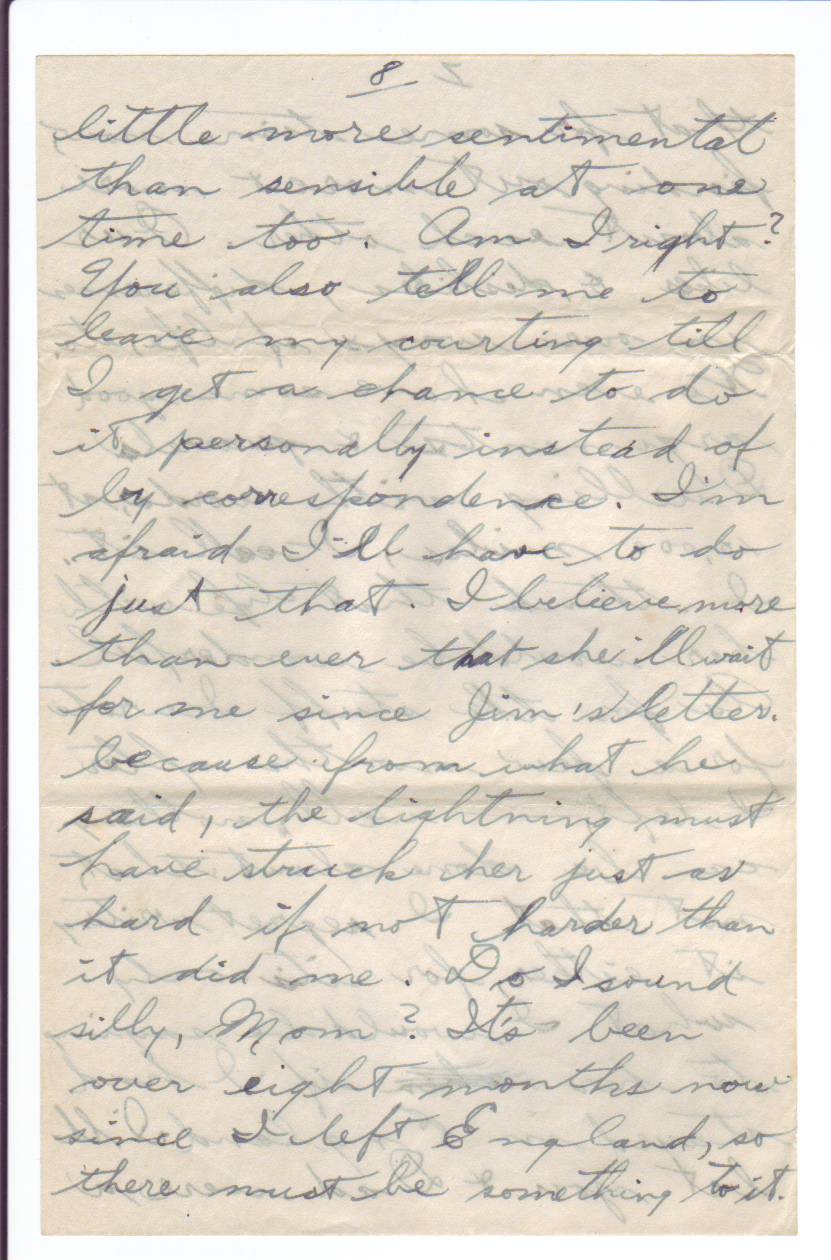 8
little more sentimental
than sensible at one
time too. Am I right?
You also tell me to
leave my courting till
I get a chance to do
it personally instead of
by correspondence. I'm
afraid I'll have to do
just that. I believe more
than ever that she'll wait
for me since Jim's letter.
because from what he
said, the lightning must
have struck her just as
hard if not harder than
it did me. Do I sound
silly, Mom? It's been
over eight months now
since I left England, so
there must be something to it.